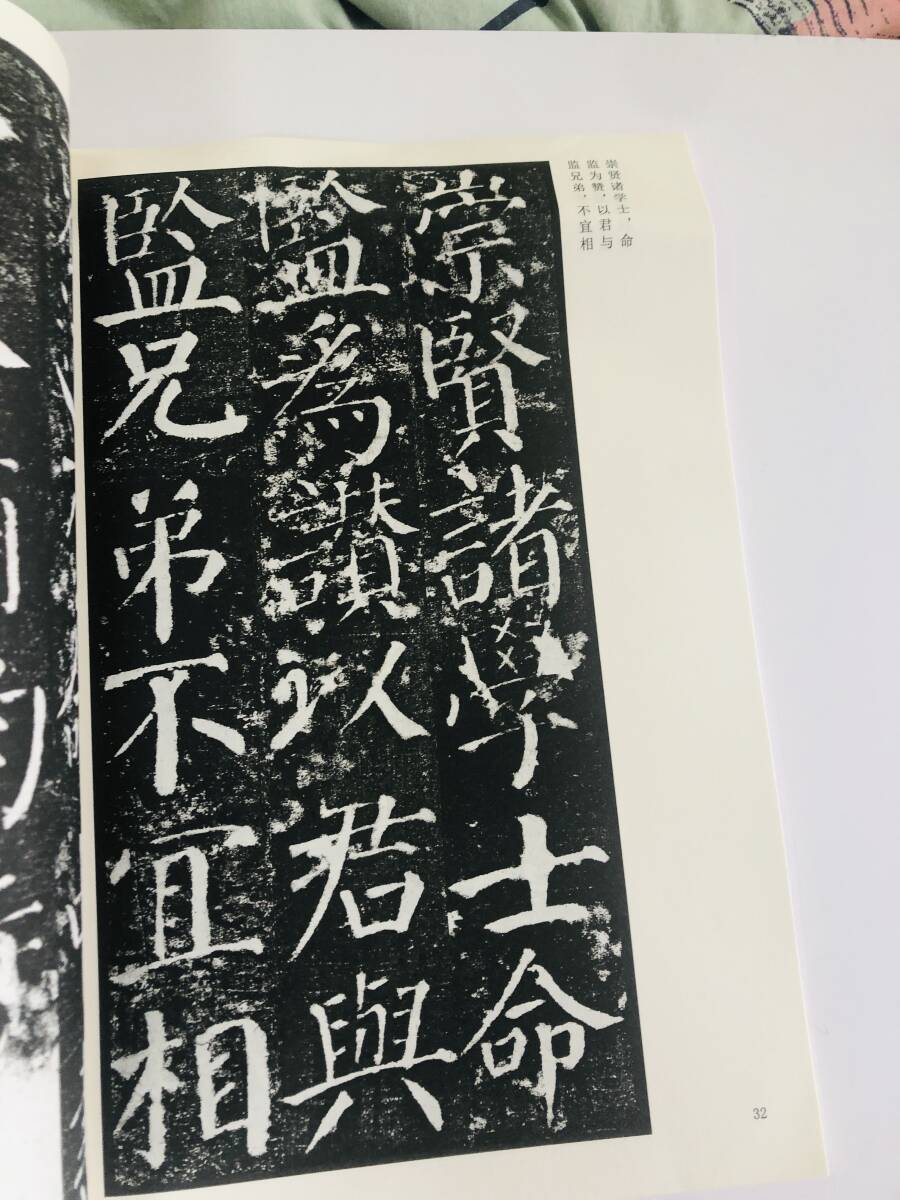 崇贤诸学士，命
监为赞，以君与
监兄弟，不宜相
崇賢諸學士命
監為讃以君與
監兄弟不宜相
32